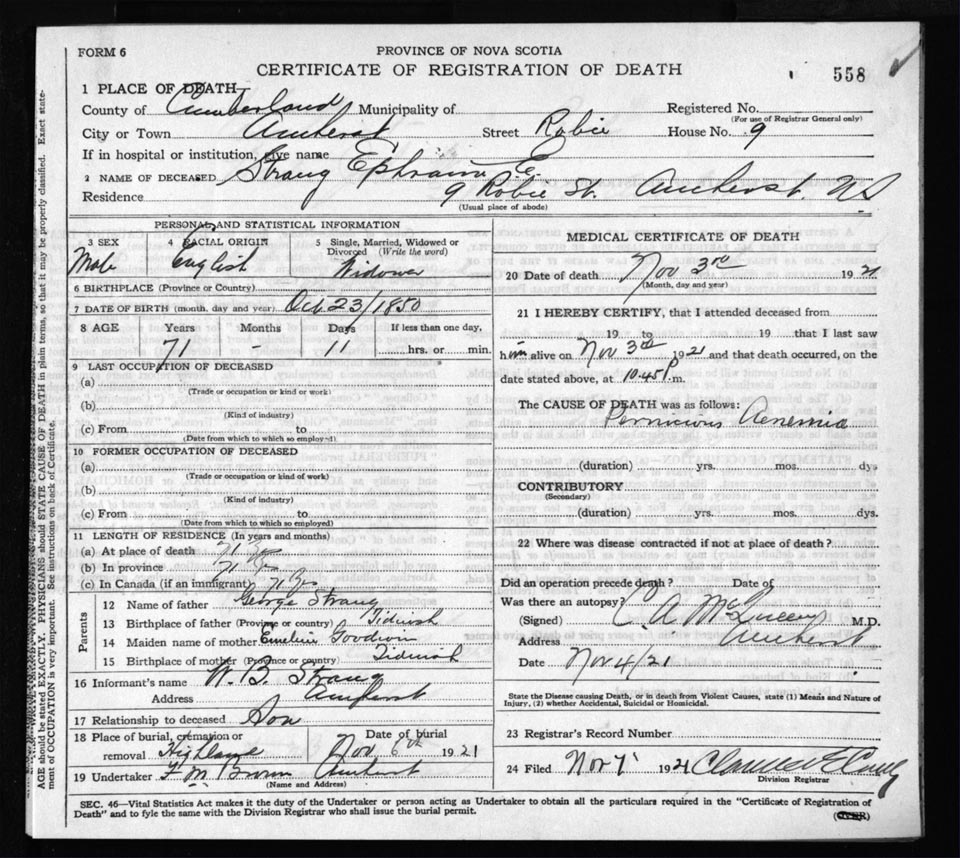 FORM 6
PROVINCE OF NOVA SCOTIA
CERTIFICATE OF REGISTRATION OF DEATH
558
1 PLACE OF DEATH
County of Cumberland Municipality of
Registered No.
(For use of Registrar General only)
City or Town Amherst Street Robie House No. 9
If in hospital or institution, give name
2 NAME OF DECEASED Strang Ephraim E.
Residence 9 Robie St. Amherst. N S
(Usual place of abode)
PERSONAL AND STATISTICAL INFORMATION
3 SEX Male
4 RACIAL ORIGIN English
5 Single, Married, Widowed or Divorced (Write the word) Widower
6 BIRTHPLACE (Province or Country)
7 DATE OF BIRTH (month, day and year) Oct 23/1850
8 AGE Years Months Days If less than one day,
71 - 11 hrs. or min.
9 LAST OCCUPATION OF DECEASED
(a)
(Trade or occupation or kind or work)
(b)
(Kind of industry)
(c) From to
(Date from which to which so employed)
10 FORMER OCCUPATION OF DECEASED
(a)
(Trade or occupation or kind of work)
(b)
(Kind of industry)
(c) From to
(Date from which to which so employed)
11 LENGTH OF RESIDENCE (In years and months)
(a) At place of death 71 Yrs
(b) In province 71 Yrs
(c) In Canada (if an immigrant) 71 Yrs
Parents
12 Name of father George Strang
13 Birthplace of father (Province or country) Tidnish
14 Maiden name of mother Goodwin
15 Birthplace of mother (Province or country) Tidnish
16 Informant's name W. B. Strang
Address Amherst
17 Relationship to deceased Son
18 Place of burial, cremation or removal Highland
Date of burial Nov 6th 1921
19 Undertaker F M Brown Amherst
(Name and Address)
MEDICAL CERTIFICATE OF DEATH
20 Date of death Nov 3rd 1921
(Month, day and year)
21 I HEREBY CERTIFY, that I attended deceased from
19 to 19 that I last saw
him alive on Nov 3rd 1921 and that death occurred, on the
date stated above, at 10.45 m.
The CAUSE OF DEATH was as follows:
Pernicious Aenemia
(duration) yrs. mos. dys
CONTRIBUTORY
(Secondary)
(duration) yrs. mos. dys.
22 Where was disease contracted if not at place of death?
Did an operation precede death? Date of
Was there an autopsy?
(Signed) C A McQueen M.D.
Address Amherst
Date Nov 4/21
State the Disease causing Death, or in death from Violent Causes, state (1) Means and Nature of
Injury, (2) whether Accidental, Suicidal or Homicidal.
23 Registrar's Record Number
24 Filed Nov 7 1921
Division Registrar
SEC. 46—Vital Statistics Act makes it the duty of the Undertaker or person acting as Undertaker to obtain all the particulars required in the "Certificate of Registration of
Death" and to fyle the same with the Division Registrar who shall issue the burial permit.
(OVER)
AGE should be stated EXACTLY. PHYSICIANS should STATE CAUSE OF DEATH in plain terms, so that it may be properly classified. Exact state-
ment of OCCUPATION is very important. See instructions on back of Certificate.